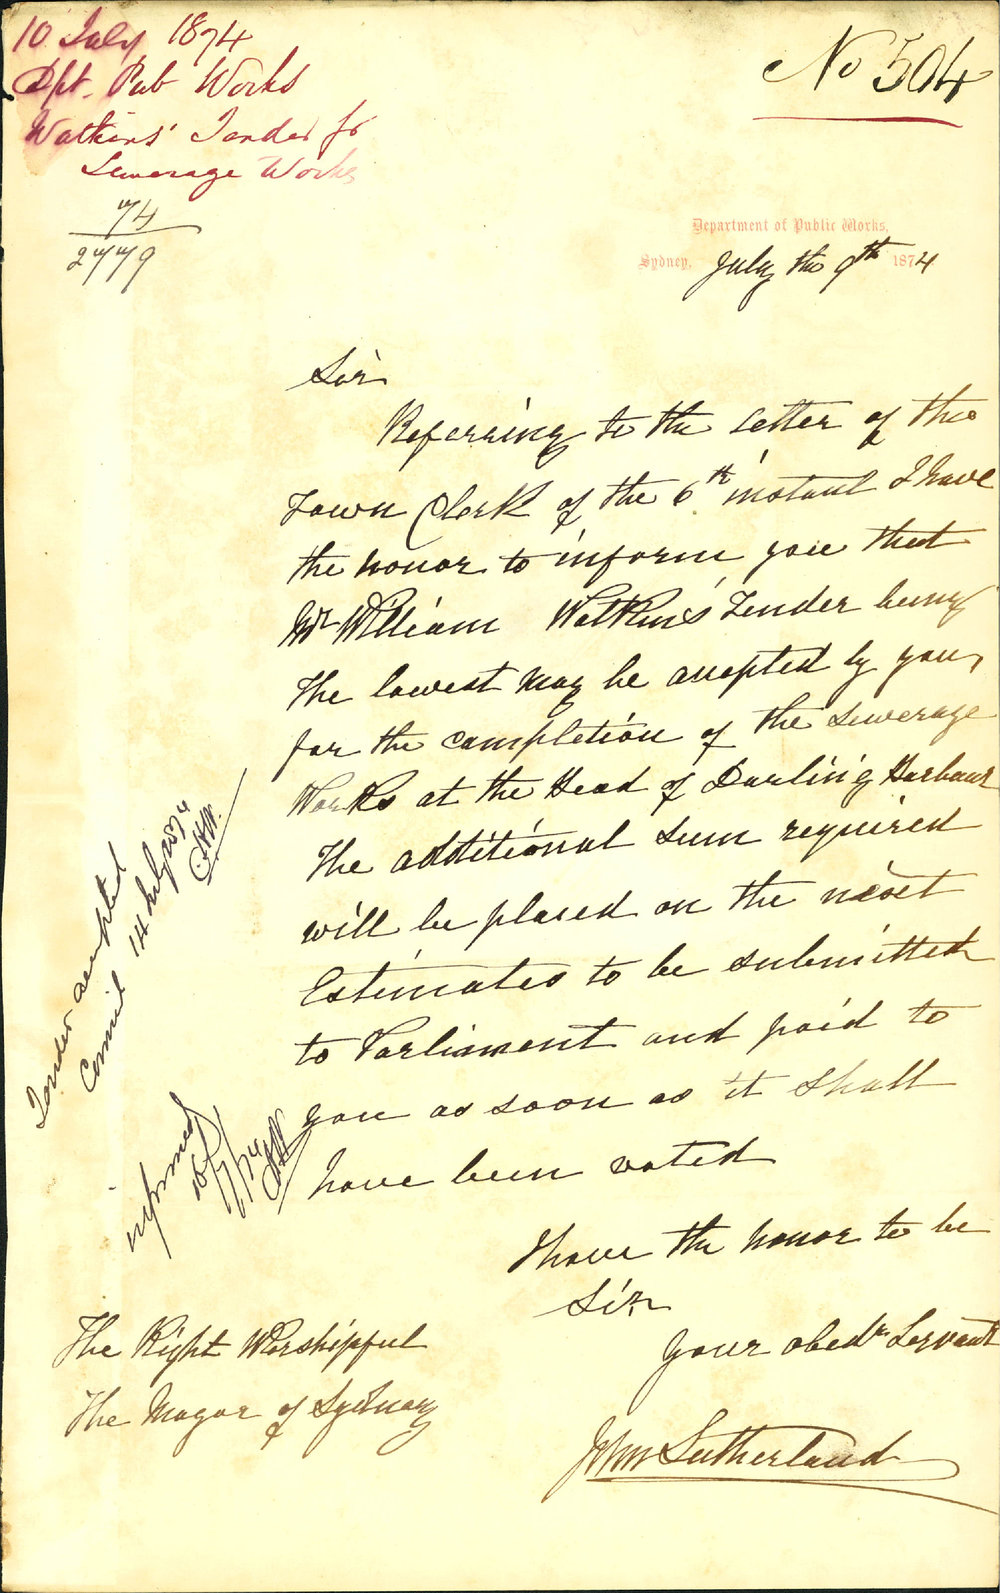 10 July 1874
Dpt. Pub Works
Watkins' Tender for
Sewerage Works
74
2779
No 504
Department of Public Works,
Sydney, July the 9th 1874
Sir
Referring to the Letter of the
Town Clerk of the 6th instant I have
the honor to inform you that
Mr William Watkins' Tender being
the lowest may be accepted by you,
for the completion of the Sewerage
Works at the Head of Darling Harbour
The additional sum required
will be placed on the next
Estimates to be submitted
to Parliament and paid to
you as soon as it shall
have been voted
I have the honor to be
Sir
Your obedt Servant
John Sutherland
The Right Worshipful
The Mayor of Sydney
Tender accepted
Council 14 July 1874
informed
16/7/74